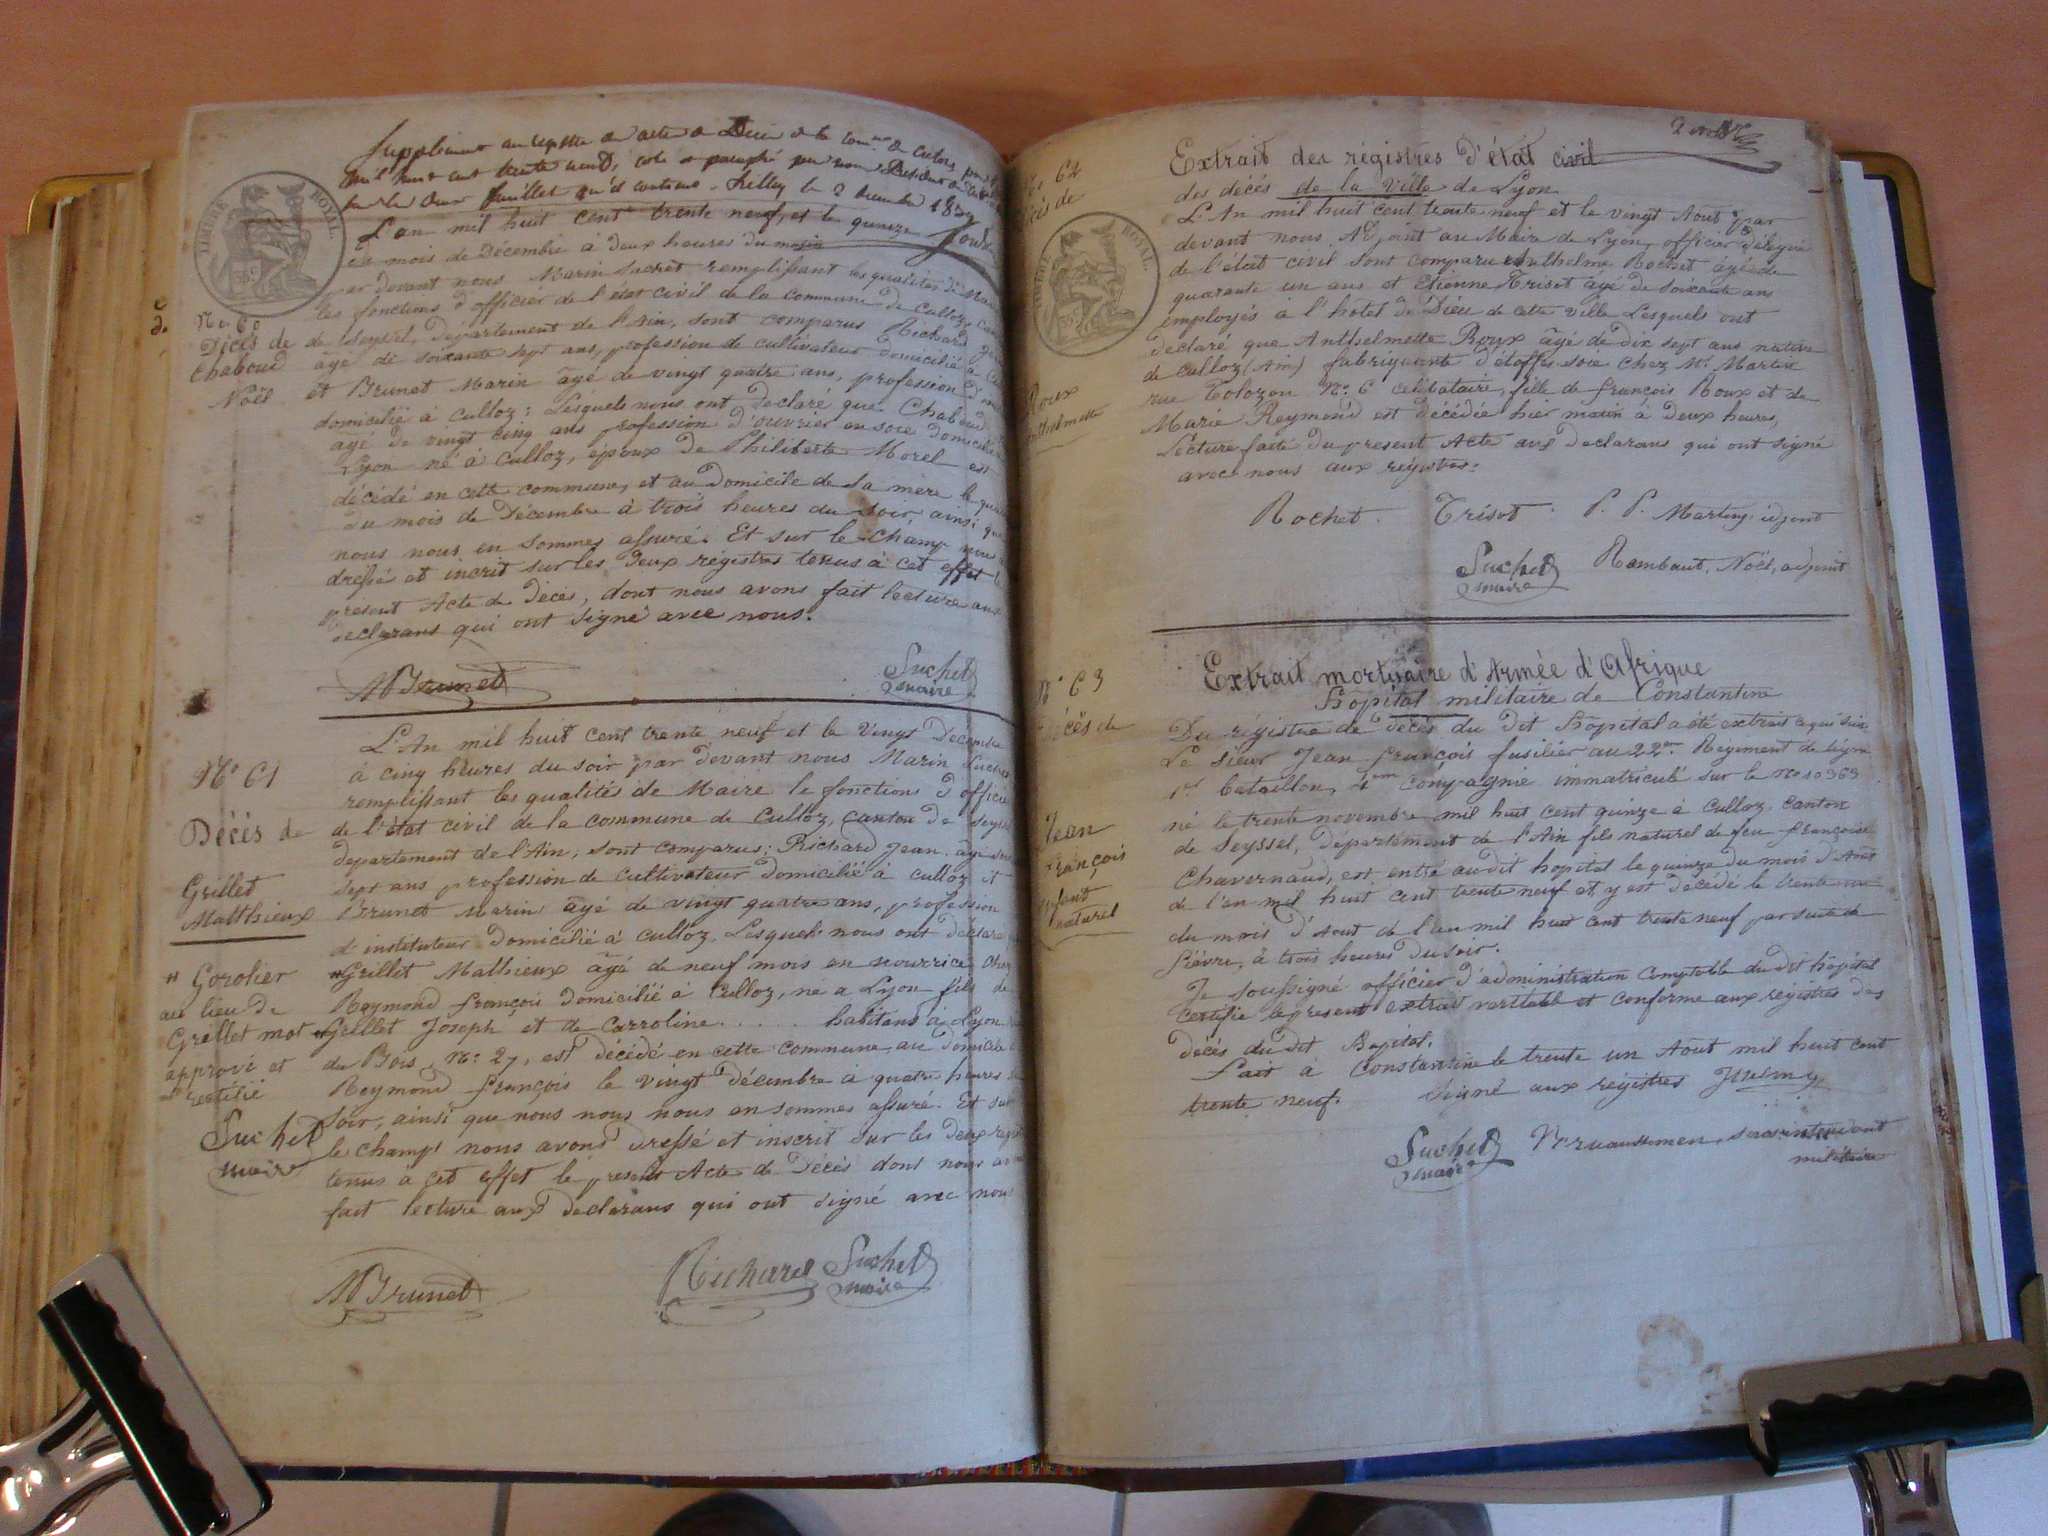 Supplément au registre de acte de Décès de la com.ne de Culoz, pour
mil huit cent trente neuf, coté et paraphé par nous Président
feuillet qu'il contient. Belley le 2 décembre 1839
TIMBRE ROYAL.
L'an mil huit cent trente neuf, et le quinze
du mois de Décembre à deux heures du matin
par devant nous Marin Suchet remplissant les qualités de Maire
les fonctions d'officier de l'état civil de la commune de Culloz, can
de Seyssel, Département de l'Ain, sont comparus Richard Jean
âgé de soixante sept ans, profession de cultivateur domicilié à
et Brunet Marin âgé de vingt quatre ans, profession d'
domicilié à Culloz; Lesquels nous ont déclaré que Chaboud
âgé de vingt cinq ans profession d'ouvrier en soie domicilié
Lyon né à Culloz, époux de Philiberte Morel est
décédé en cette commune, et au domicile de sa mere le
du mois de Décembre à trois heures du soir, ainsi que
nous nous en sommes assuré. Et sur le champ nous
dressé et incrit sur les deux régistres tenus à cet effet le
présent Acte de Décès, dont nous avons fait lecture aux
declarans qui ont signé avec nous.
No 60
Décès de
Chaboud
Noël
MBrunet
Suchet
maire
L'An mil huit cent trente neuf et le vingt Decembre
à cinq heures du soir par devant nous Marin Suchet
remplissant les qualités de Maire le fonctions d'officier
de l'état civil de la commune de Culloz, canton de Seyssel
département de l'Ain, sont comparus; Richard Jean âgé
sept ans profession de cultivateur domicilié à Culloz et
Brunet Marin âgé de vingt quatre ans, profession
d'instituteur domicilié à Culloz, Lesquels nous ont déclaré
"Grillet Mathieux âgé de neuf mois en nourrice chez
Reymond françois domicilié à Culloz, ne a Lyon fils de
"Grillet Joseph et de Carroline . . . . . habitans à Lyon
du Bois, No: 27, est décédé en cette commune, au domicile
Reymond françois le vingt décembre à quatre heures
soir, ainsi que nous nous nous en sommes assuré. Et sur
le champ nous avons dressé et inscrit sur les deux regis
tenus a cet effet le present Acte de Décès dont nous av
fait lecture aux declarans qui ont signé avec nous
No 61
Décès de
Grillet
Matthieux
" Gorolier
au lieu de
Grillet mot
apprové et
rectifié
Suchet
maire
MBrunet
Richard
Suchet
maire
No 62
Décès de
TIMBRE ROYAL.
Roux
Anthelmette
Extrait des régistres d'état civil
des décés de la Ville de Lyon
L'An mil huit cent trente neuf et le vingt Aout par
devant nous Adjoint au Maire de Lyon, officier délégué
de l'état civil sont comparu Anthelme Rochet âgé de
quarante un ans et Etienne Trisot âgé de soixante ans
employés à l'hotel de Dieu de cette ville Lesquels ont
declaré que Anthelmette Roux âgé de dix sept ans native
de Culloz (Ain) fabriquante d'étoffes soie chez Mr Martin
rue Tolozan No: 6 celibataire, fille de françois Roux et de
Marie Reymond est décédée hier matin à deux heures,
Lecture faite du present Acte aux declarans qui ont signé
avec nous aux régistres.
Rochet. Trisot. P. P. Martin, adjoint
Suchet
maire
Rambaut, Noël, adjoint
No 63
Décès de
Jean
François
enfant
naturel
Extrait mortuaire d'Armée d'Afrique
Hôpital militaire de Constantine
Du régistre de décès du dit hôpital a été extrait ce qui suit
Le sieur Jean françois fusilier au 22me Regiment de ligne
1er bataillon, 4em compagnie immatriculé sur le No 10363
né le trente novembre mil huit cent quinze à Culloz, canton
de Seyssel, département de l'Ain fils naturel de feu françoise
Chavernaud, est entré au dit hopital le quinze du mois d'Aout
de l'an mil huit cent trente neuf et y est décédé le trente un
du mois d'Aout de l'an mil huit cent trente neuf par suite de
fièvre, à trois heures du soir.
Je soussigné officier d'administration comptable du dit hôpital
certifie le present extrait veritable et conforme aux régistres des
décés du dit Hopital.
Fait à Constantine le trente un Aout mil huit cent
trente neuf. Signé aux régistres
Suchet
maire
sous intendant
militaire